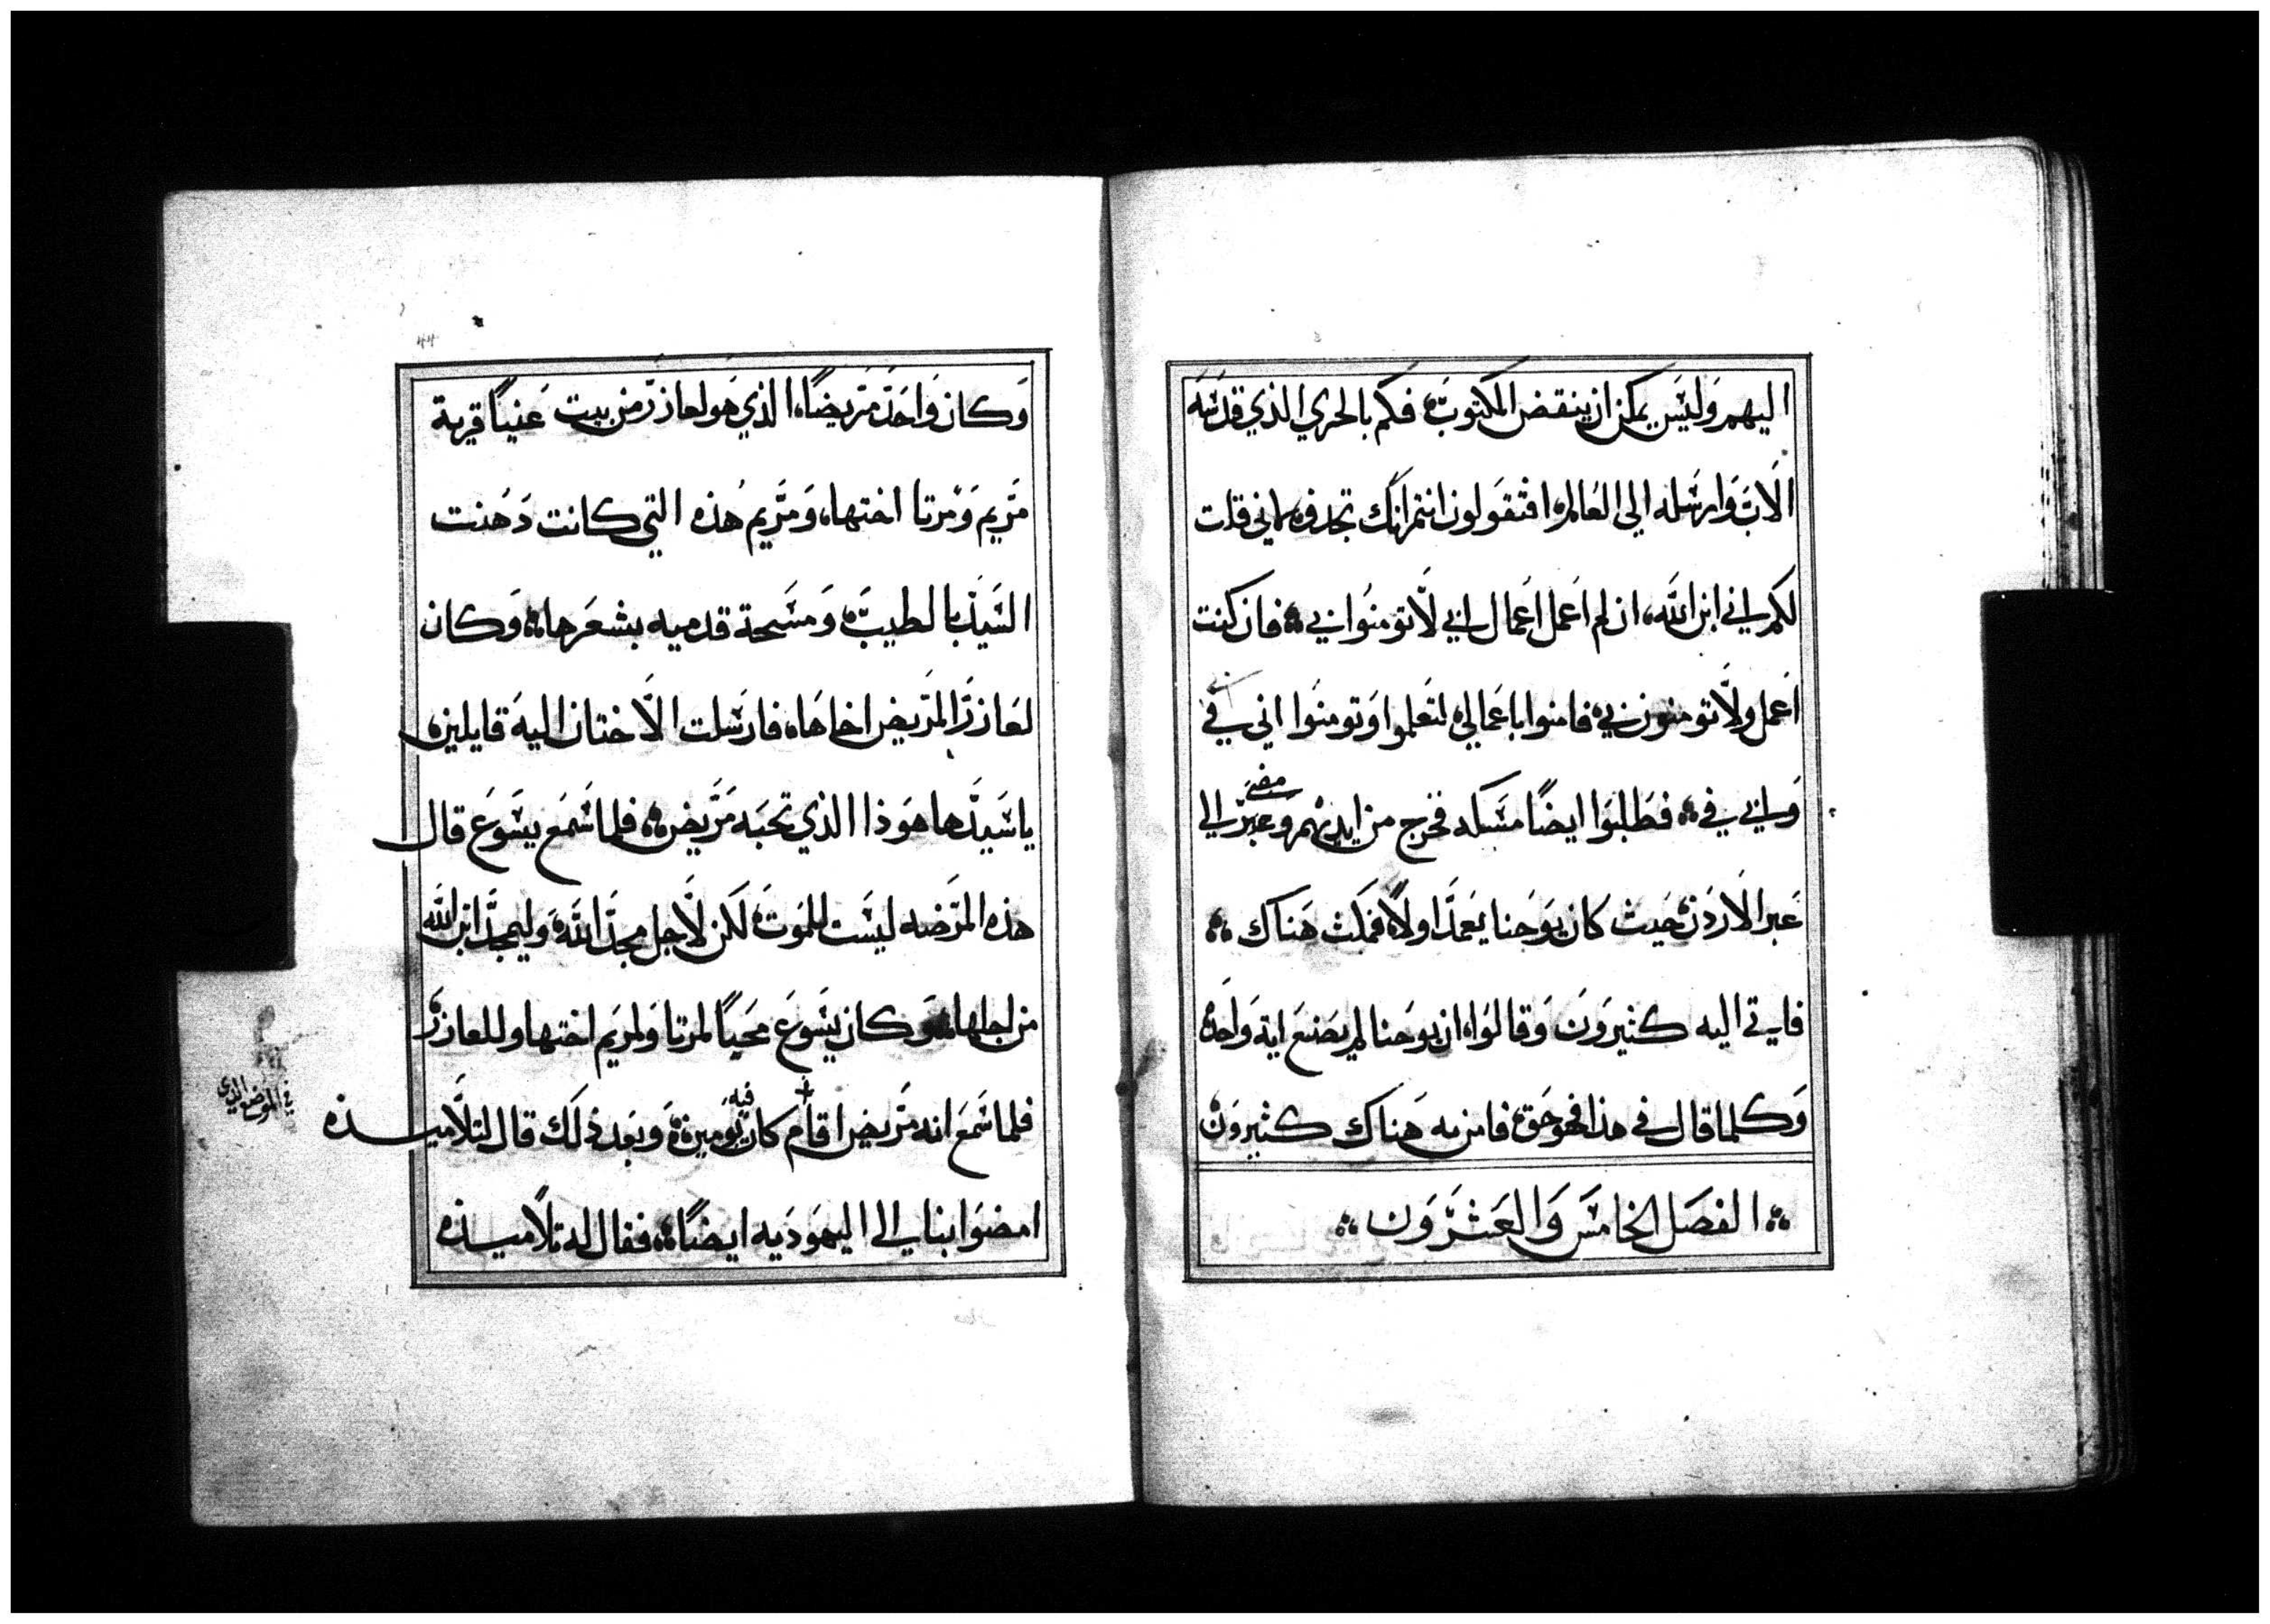 اليهم وليس يمكن ان ينقض المكتوب فكم بالحري الذي قدسه
الاب وارسله الى العالم افتقولون انتم انك تجدف لاني قلت
لكم اني ابن الله ان لم اعمل اعمال ابي لا تومنوا بي فان كنت
اعمل ولا تومنون بي فامنوا باعمالي لتعلموا وتومنوا اني في ابي
وابي في فطلبوا ايضًا مسكه فخرج من ايديهم وعبر الي
مضى
عبر الاردن حيث كان يوحنا يعمد اولا فمكث هناك
فاتي اليه كثيرون وقالوا ان يوحنا لم يصنع اية واحده
وكلما قال في هذا فهو حق فامن به هناك كثيرون
الفصل الخامس والعشرون
44
وكان واحد مريضًا الذي هو لعازر من بيت عنيا قرية
مريم ومرتا اختها ومريم هذه التي كانت دهنت
السيد بالطيب ومسحة قدميه بشعرها وكان
لعازر المريض اخاها فارسلت الاختان اليه قايلين
يا سيد ها هو ذا الذي تحبه مريض فلما سمع يسوع قال
هذه المرضه ليست للموت لكن لاجل مجد الله وليمجد ابن الله
من اجلها وكان يسوع محبًا لمرتا ولمريم اختها وللعازر
فلما سمع انه مريض اقام كان فيه يومين وبعد ذلك قال لتلاميذه
في الموضع الذي
امضوا بنا الى اليهوديه ايضًا فقال له تلاميذه